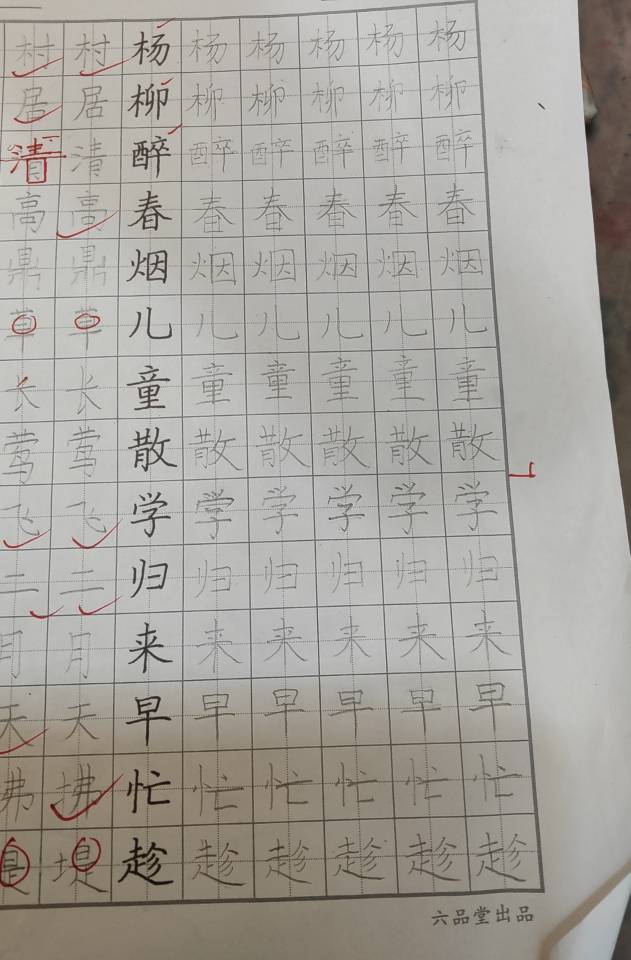 村 村 杨 杨 杨 杨 杨 杨
居 居 柳 柳 柳 柳 柳 柳
清 清 醉 醉 醉 醉 醉 醉
高 高 春 春 春 春 春 春
鼎 鼎 烟 烟 烟 烟 烟 烟
草 草 儿 儿 儿 儿 儿 儿
长 长 童 童 童 童 童 童
莺 莺 散 散 散 散 散 散
飞 飞 学 学 学 学 学 学
二 二 归 归 归 归 归 归
月 月 来 来 来 来 来 来
天 天 早 早 早 早 早 早
拂 拂 忙 忙 忙 忙 忙 忙
堤 堤 趁 趁 趁 趁 趁 趁
六品堂出品